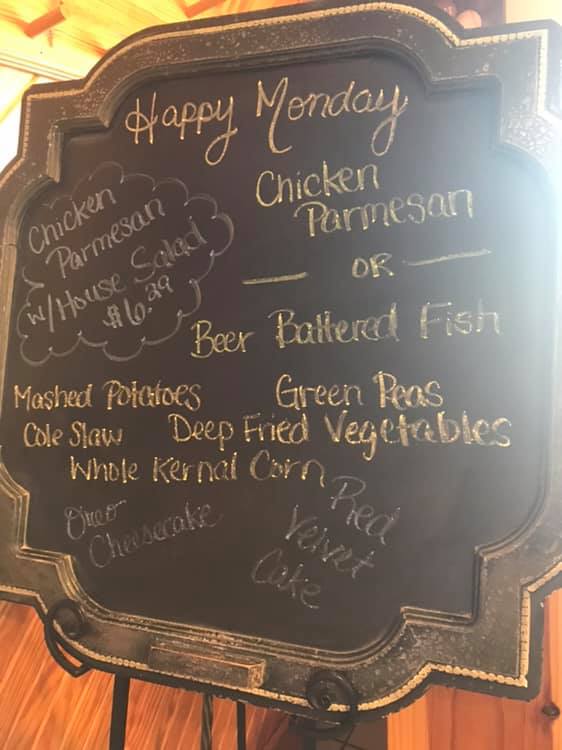 Happy Monday
Chicken
Parmesan
w/House Salad
$6.29
Chicken
Parmesan
OR
Beer Battered Fish
Mashed Potatoes Green Peas
Cole Slaw Deep Fried Vegetables
Whole Kernal Corn
Oreo
Cheesecake
Red
Velvet
Cake